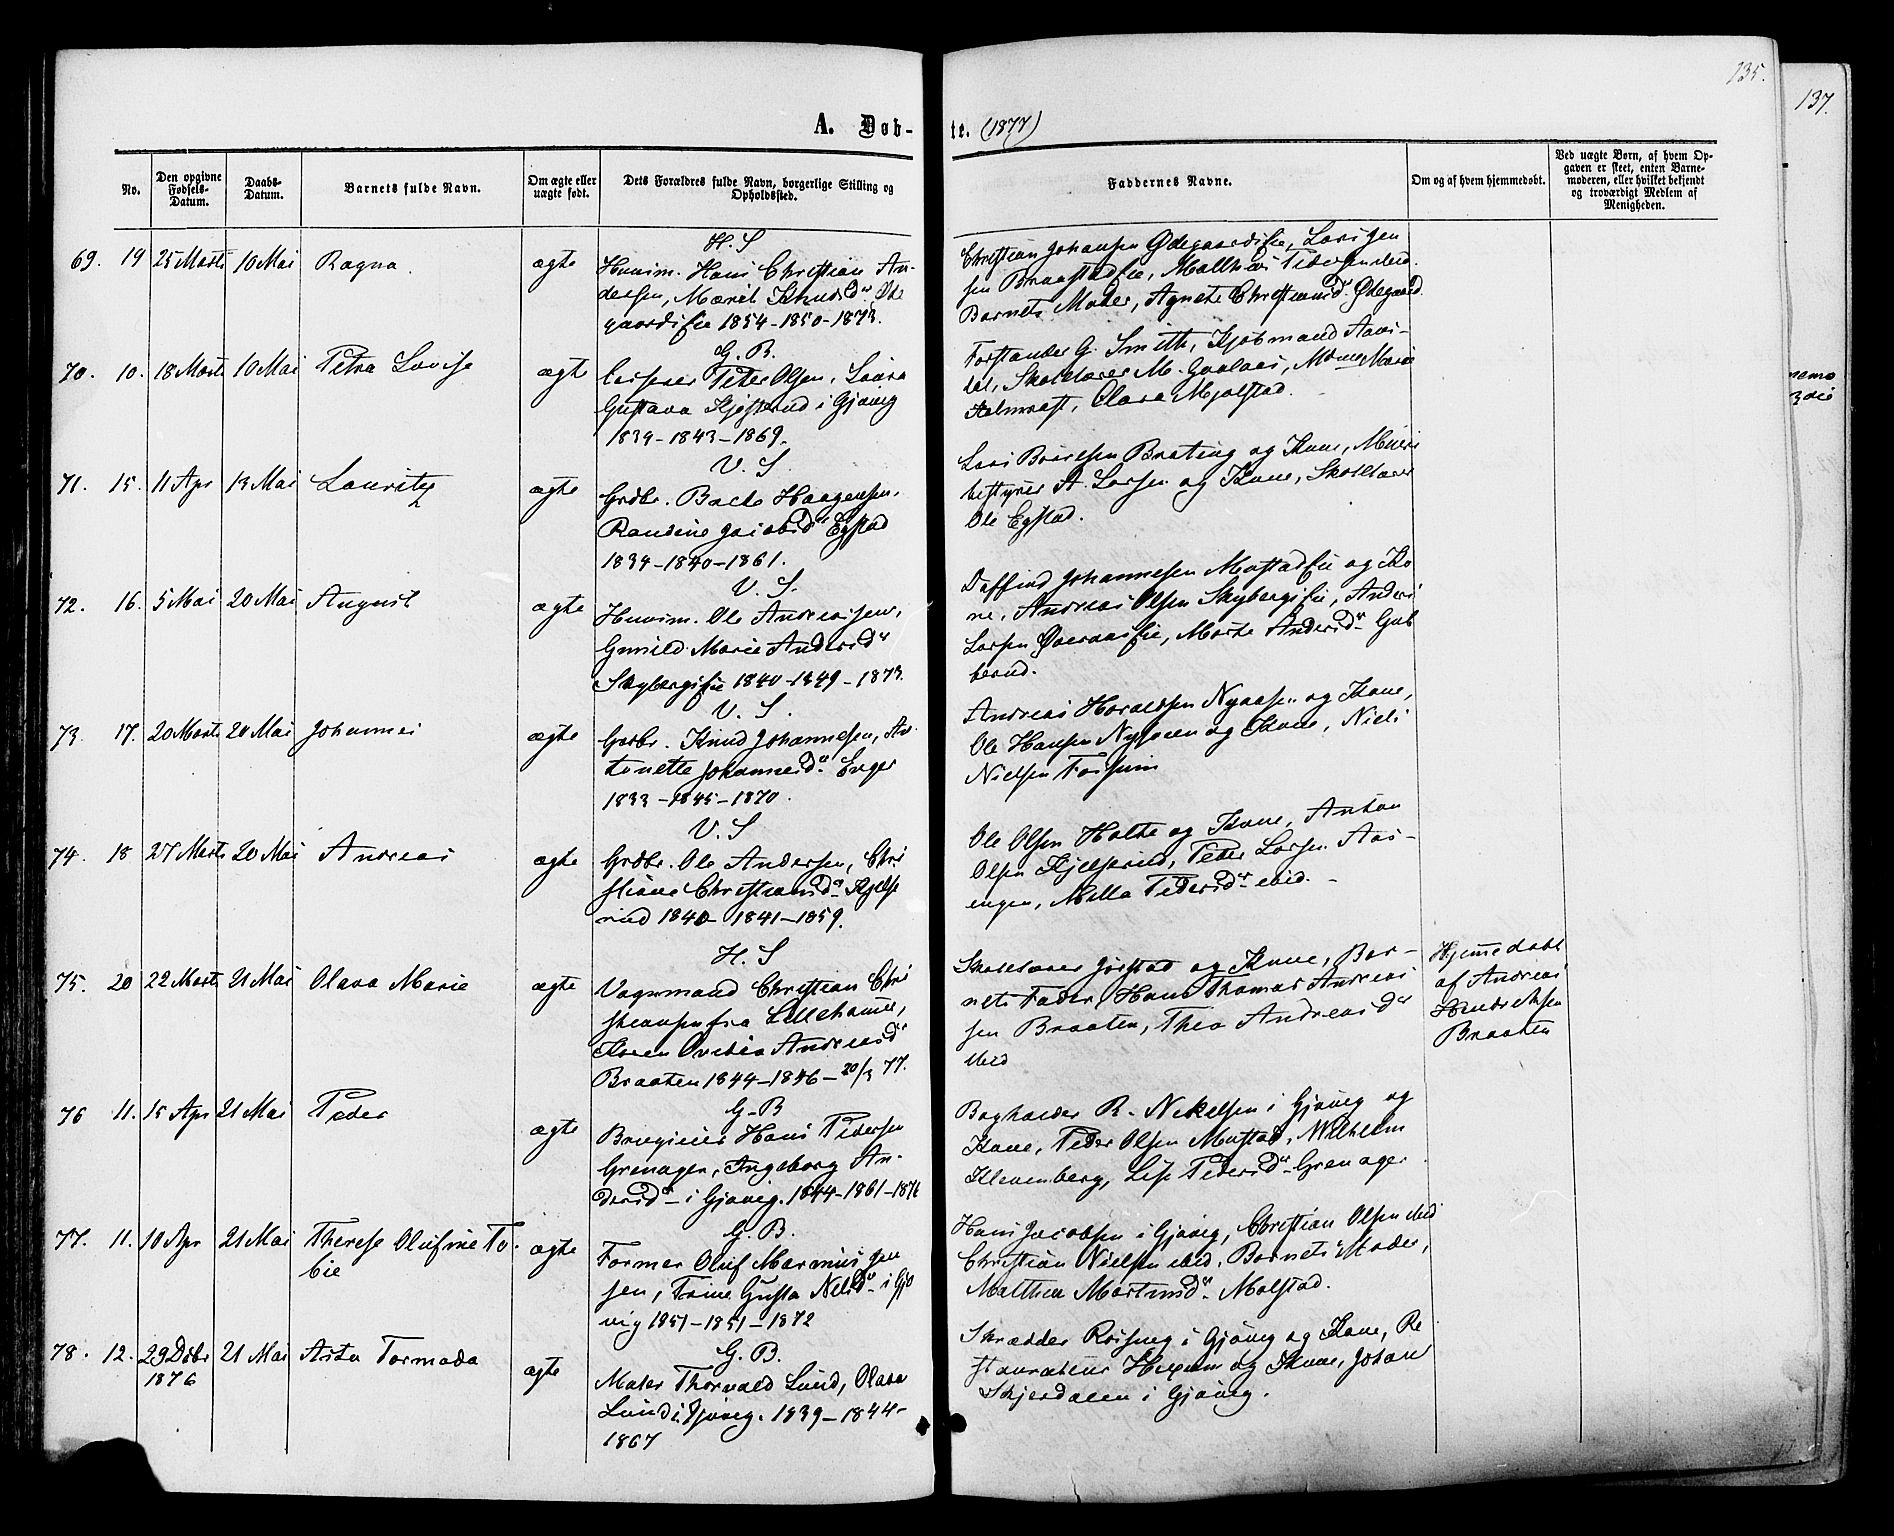 135.
137.
A. Døb-
te. (1877)
No.
Den opgivne Fødsels-Datum.
Daabs-Datum.
Barnets fulde Navn.
Om ægte eller uægte født.
Dets Forældres fulde Navn, borgerlige Stilling og Opholdssted.
Faddernes Navne.
Om og af hvem hjemmedøbt.
Ved uægte Børn, af hvem Opgaven er skeet, enten Barnemoderen, eller hvilket bekjendt og troværdigt Medlem af Menigheden.
69. 19 25 Marts 10 Mai Ragna. ægte
H. S
Huusm. Hans Christian An-
dersen, Marit Knudsd. Øde
gaardseie 1854-1850-1873.
Christian Johansen Ødegaardseie, Lars Jen
sen Braastadeie, Mathias Pedersen ibid.
Barnets Moder, Agnete Christiansd. Ødegaard.
70. 10. 18 Marts 10 Mai Petra Lovise ægte
G. B.
Peder Olsen, Laura
Gustava i Gjøvig
1839-1843-1869.
Forstander G. Smith, Kjøbmand Aavs-
tal, Skolelærer M. Mme Marie
Clara Mjølstad.
71. 15. 11 Apr 13 Mai Lauritz ægte
V. S.
Grdbr. Haagensen,
Jacobsd. Egstad
1834-1840-1861.
Lars Braating og Kone,
bestyrer A. Larsen og Kone, Skolelærer
Ole Egstad.
72. 16. 5 Mai 20 Mai August ægte
V. S.
Huusm. Ole Andreassen,
Gunild Marie Andersd.
Skybergseie 1840-1849-1873.
Johannesen Mustadeie og Ko
ne, Andreas Olsen Skybergseie, Anders
Larsen Marte Andersd.
73. 17. 20 Marts 20 Mai Johannes ægte
V. S.
Grdbr. Knud Johannesen, An-
tonette Johannesd. Enger
1833-1845-1870.
Andreas Haraldsen og Kone,
Ole Hansen og Kone, Niels
Nielsen Fossum
74. 18 27 Marts 20 Mai Andreas ægte
V. S
Grdbr. Ole Andersen, Chri
stiane Christiansd. Kjelse
rud 1840-1841-1859.
Ole Olsen Holte og Kone, Anton
Olsen Kjelserud, Peder Larsen Aas-
engen, Pedersd. ibid.
75. 20 22 Marts 21 Mai Olava Marie ægte
H. S
Christian Chri
stiansen fra Lillehamer,
Karen Andreasd.
Braaten 1844-1846-20/3 77.
Skolelærer Jørstad og Kone, Bar-
nets Fader, Hans Thomas Andreas
sen Braaten, Thea Andreasd.
ibid
Hjemmedøbt
af Andreas
Hendriksen
Braaten
76 11. 15 Apr 21 Mai Peder ægte
G. B
Hans Pedersen
Grønager, Ingeborg An-
dersd. i Gjøvig. 1844-1861-1876
Bogholder R. Nikelsen i Gjøvig og
Kone, Peder Olsen Mustad, Wilhelm
Klevenberg, Lise Pedersd. Grønager
77. 11. 10 Apr 21 Mai Therese Olufine To-
bie ægte
G. B.
Former Oluf Marinius Jen
sen, Trine Gusta Nilsd. i Gjø
vig 1851-1851-1872
Hans Jacobsen i Gjøvig, Christian Olsen ibid
Christian Nielsen ibid. Barnets Moder,
Mathea Mortensd. Mølstad.
78. 12. 29 Dcbr 1876 21 Mai Asta Tormoda ægte
G. B.
Maler Thorvald Lund, Olava
Lund i Gjøvig. 1839-1844-
1867
Skrædder i Gjøvig og Kone, Re
stauratør Hexum og Kone, Johan
Skjerdalen i Gjøvig.